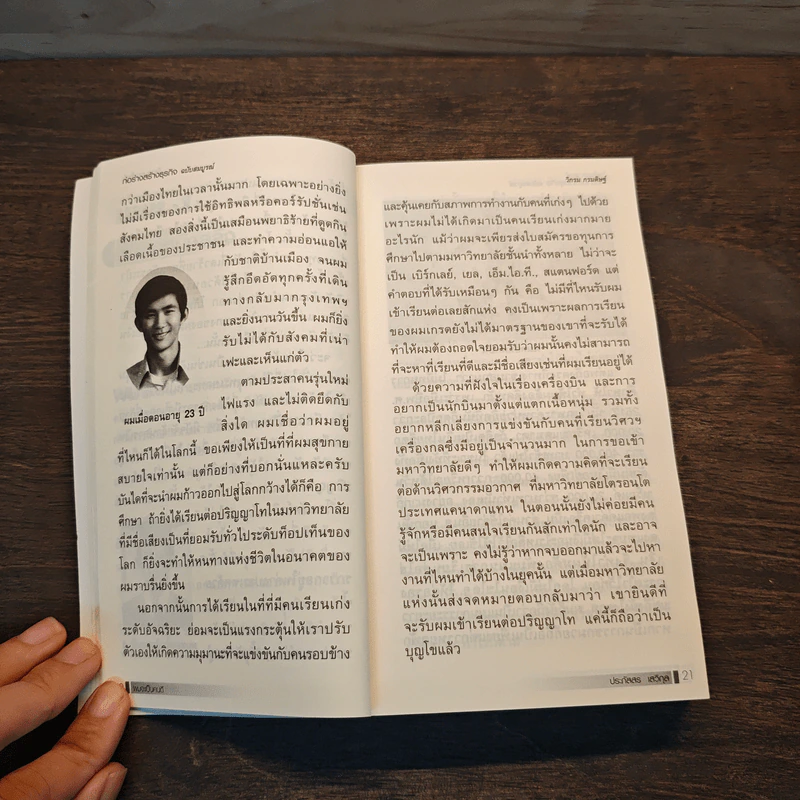 ก่อร่างสร้างธุรกิจ ฉบับสมบูรณ์
กว่าเมืองไทยในเวลานั้นมาก โดยเฉพาะอย่างยิ่ง
ไม่มีเรื่องของการใช้อิทธิพลหรือคอร์รัปชันเช่น
สังคมไทย สองสิ่งนี้เป็นเสมือนพยาธิร้ายที่ดูดกิน
เลือดเนื้อของประชาชน และทำความอ่อนแอให้
กับชาติบ้านเมือง จนผม
รู้สึกอึดอัดทุกครั้งที่เดิน
ทางกลับมากรุงเทพฯ
และยิ่งนานวันขึ้น ผมก็ยิ่ง
รับไม่ได้กับสังคมที่เน่า
เฟะและเห็นแก่ตัว
ตามประสาคนรุ่นใหม่
ไฟแรง และไม่ติดยึดกับ
สิ่งใด ผมเชื่อว่าผมอยู่
ผมเมื่อตอนอายุ 23 ปี
ที่ไหนก็ได้ในโลกนี้ ขอเพียงให้เป็นที่ที่ผมสุขกาย
สบายใจเท่านั้น แต่ก็อย่างที่บอกนั่นแหละครับ
บันไดที่จะนำผมก้าวออกไปสู่โลกกว้างได้ก็คือ การ
ศึกษา ถ้ายิ่งได้เรียนต่อปริญญาโทในมหาวิทยาลัย
ที่มีชื่อเสียงเป็นที่ยอมรับทั่วไประดับท็อปเท็นของ
โลก ก็ยิ่งจะทำให้หนทางแห่งชีวิตในอนาคตของ
ผมราบรื่นยิ่งขึ้น
นอกจากนั้นการได้เรียนในที่ที่มีคนเรียนเก่ง
ระดับอัจฉริยะ ย่อมจะเป็นแรงกระตุ้นให้เราปรับ
ตัวเองให้เกิดความมุมานะที่จะแข่งขันกับคนรอบข้าง
ผมจะเป็นคนดี
วิกรม กรมดิษฐ์
และคุ้นเคยกับสภาพการทำงานกับคนที่เก่งๆ ไปด้วย
เพราะผมไม่ได้เกิดมาเป็นคนเรียนเก่งมากมาย
อะไรนัก แม้ว่าผมจะเพียรส่งใบสมัครขอทุนการ
ศึกษาไปตามมหาวิทยาลัยชั้นนำทั้งหลาย ไม่ว่าจะ
เป็น เบิร์กเลย์, เยล, เอ็ม.ไอ.ที., สแตนฟอร์ด แต่
คำตอบที่ได้รับเหมือนๆ กัน คือ ไม่มีที่ไหนรับผม
เข้าเรียนต่อเลยสักแห่ง คงเป็นเพราะผลการเรียน
ของผมเกรดยังไม่ได้มาตรฐานของเขาที่จะรับได้
ทำให้ผมต้องถอดใจยอมรับว่าผมนั้นคงไม่สามารถ
ที่จะหาที่เรียนที่ดีและมีชื่อเสียงเช่นที่ผมเรียนอยู่ได้
ด้วยความที่ฝังใจในเรื่องเครื่องบิน และการ
อยากเป็นนักบินมาตั้งแต่แตกเนื้อหนุ่ม รวมทั้ง
อยากหลีกเลี่ยงการแข่งขันกับคนที่เรียนวิศวฯ
เครื่องกลซึ่งมีอยู่เป็นจำนวนมาก ในการขอเข้า
มหาวิทยาลัยดีๆ ทำให้ผมเกิดความคิดที่จะเรียน
ต่อด้านวิศวกรรมอวกาศ ที่มหาวิทยาลัยโตรอนโต
ประเทศแคนาดาแทน ในตอนนั้นยังไม่ค่อยมีคน
รู้จักหรือมีคนสนใจเรียนกันสักเท่าใดนัก และอาจ
จะเป็นเพราะ คงไม่รู้ว่าหากจบออกมาแล้วจะไปหา
งานที่ไหนทำได้บ้างในยุคนั้น แต่เมื่อมหาวิทยาลัย
แห่งนั้นส่งจดหมายตอบกลับมาว่า เขายินดีที่
จะรับผมเข้าเรียนต่อปริญญาโท แค่นี้ก็ถือว่าเป็น
บุญโขแล้ว
ประภัสสร เสวิกุล 21